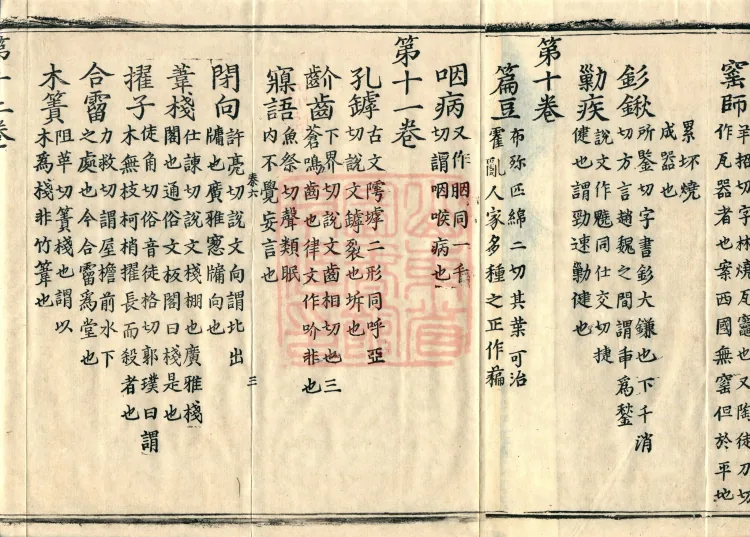 窯師羊招切字林燒瓦竈也又陶徒刀切
作瓦器者也案西國無窯但於平地
累坏燒
成器也
釤鍬所鑒切字書釤大鎌也下千消
切方言趙魏之間謂臿爲鍫
勦疾說文作同仕交切捷
健也謂勁速勦健也
第十卷
篇豆布弥匹綿二切其葉可治
霍亂人家多種之正作稨
咽病又作胭同一千
切謂咽喉病也
第十一卷
孔罅古文二形同呼亞
切說文罅裂也坼也
齘齒下界切說文齒相切也三
蒼鳴齒也律文作吤非也
寱語魚祭切聲類眠
內不覺妄言也
卷六 三
閉向許亮切說文向謂北出
牖也廣雅窓牖向也
葦棧仕諫切說文棧棚也廣雅棧
閣也通俗文板閣曰棧是也
擢子徒角切俗音徒格切郭璞曰謂
木無枝柯梢擢長而殺者也
合霤力救切謂屋檐前水下
之處也今合霤爲堂也
木簀阻革切簀棧也謂以
木爲棧非竹葦也
第十二卷